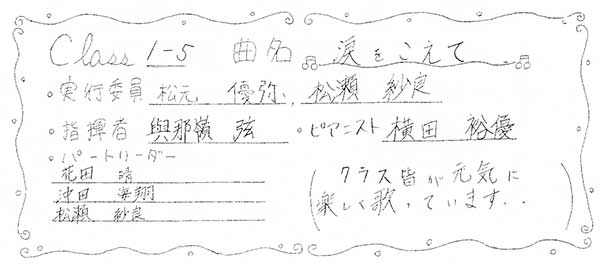 Class 1-5 曲名 ♫ 涙をこえて ♫
・実行委員 松元 優弥、松瀬 紗良
・指揮者 與那嶺 弦 ・ピアニスト 横田 裕優
・パートリーダー
花田 晴
沖田 海翔
松瀬 紗良
(クラス皆が元気に
楽しく歌っています..)